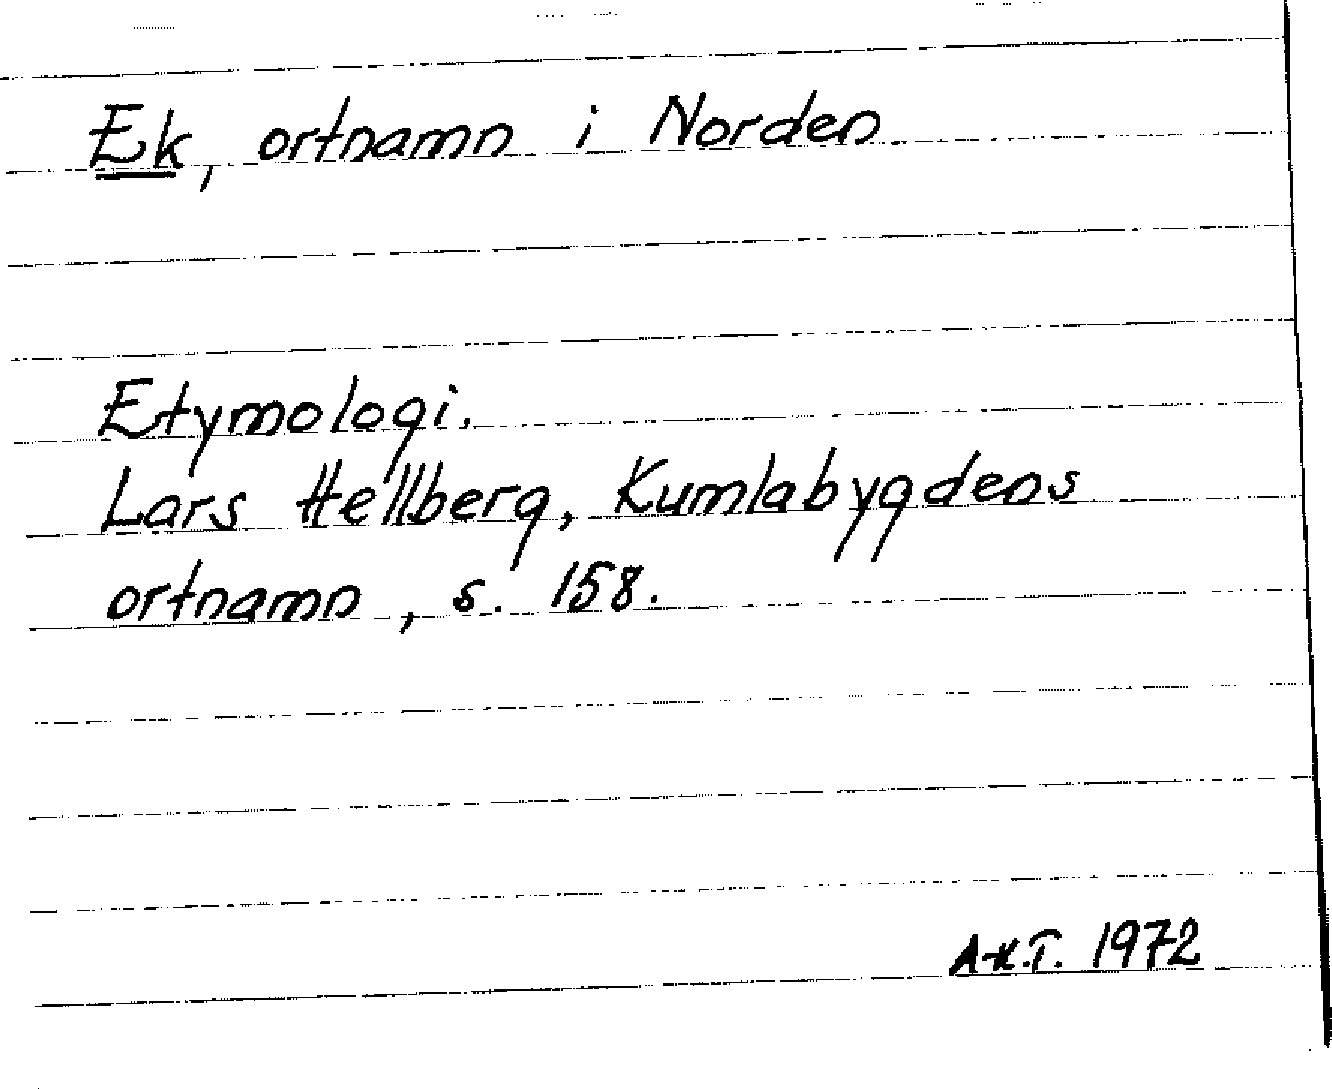 Ek, ortnamn i Norden
Etymologi.
Lars Hellberg, Kumlabygdens
ortnamn, s. 158.
A-K.T. 1972